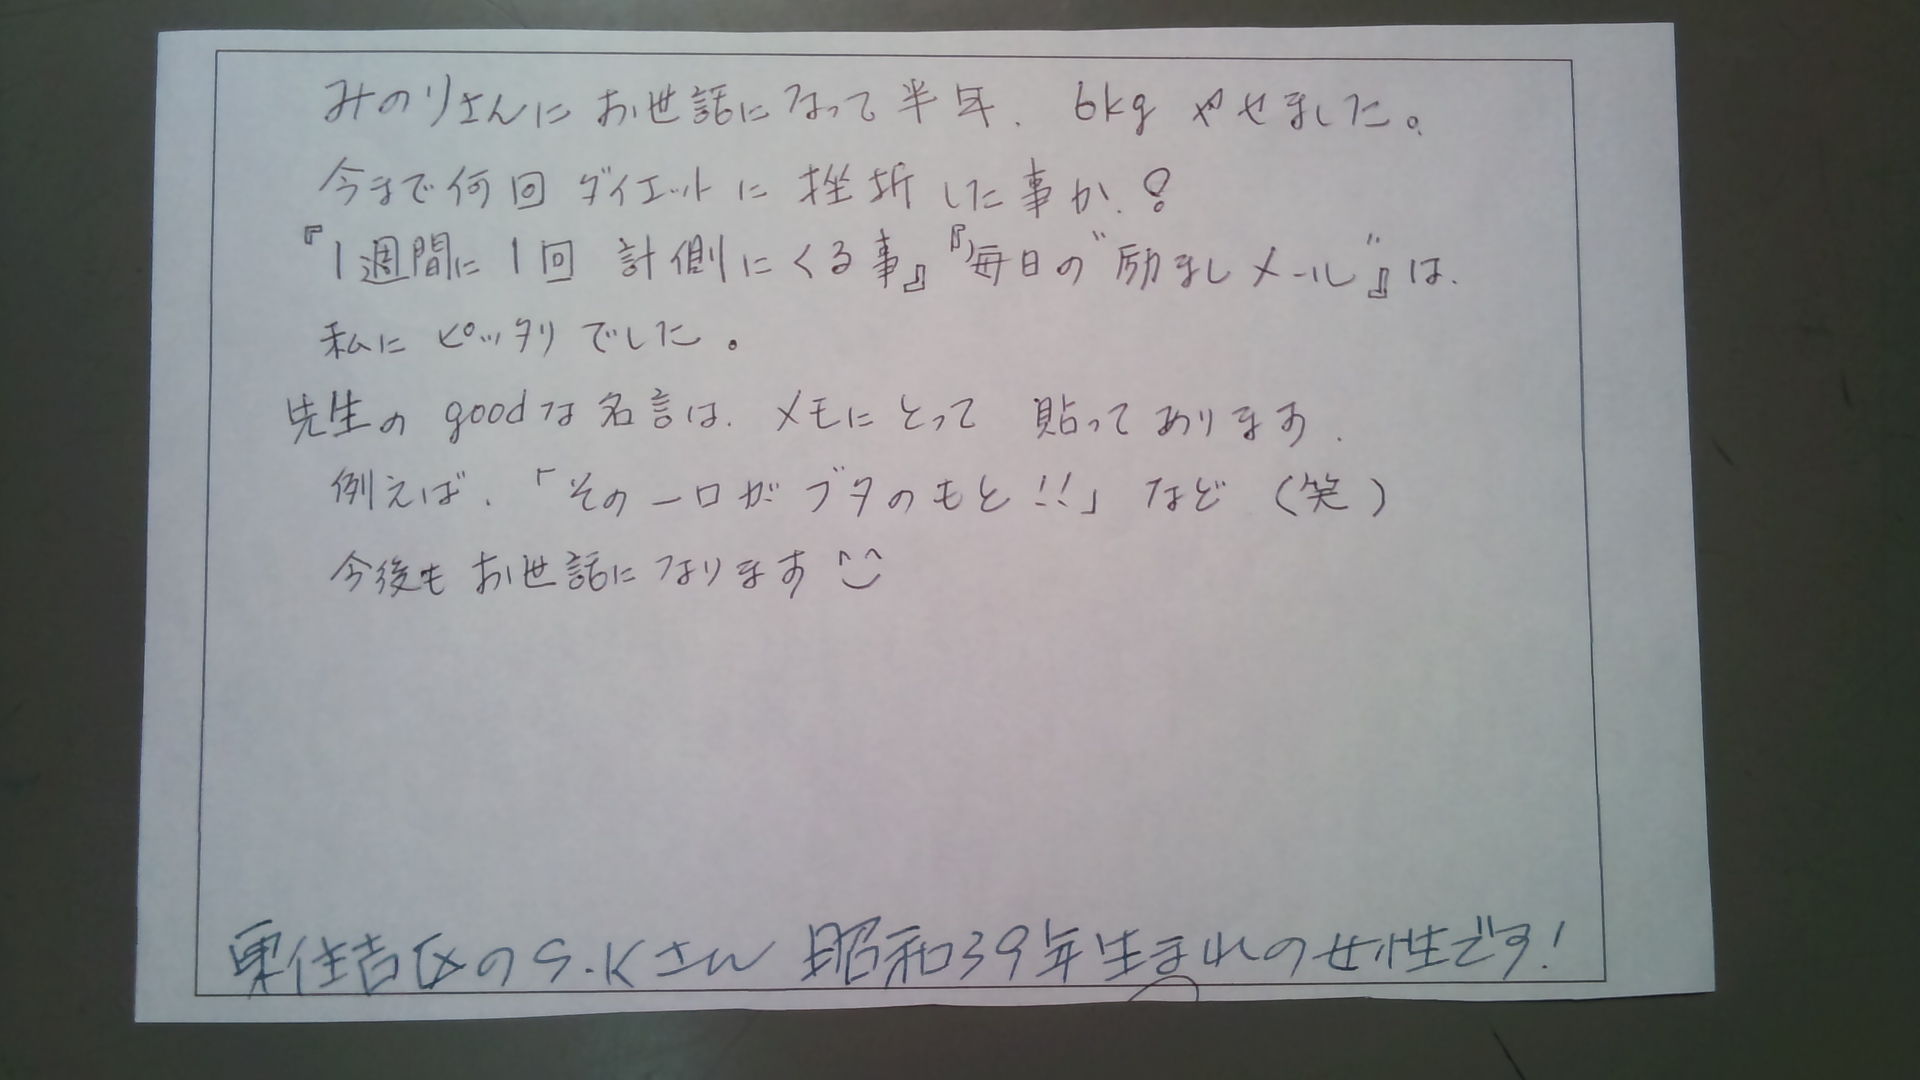 みのりさんにお世話になって半年、6kgやせました。
今まで何回ダイエットに挫折した事か・・・!
『1週間に1回 計側にくる事』『毎日の"励ましメール"』は、
私にピッタリでした。
先生のgoodな名言は、メモにとって 貼ってあります。
例えば、「その一口がブタのもと!!」など(笑)
今後もお世話になります^^
東住吉区のS.Kさん 昭和39年生まれの女性です!